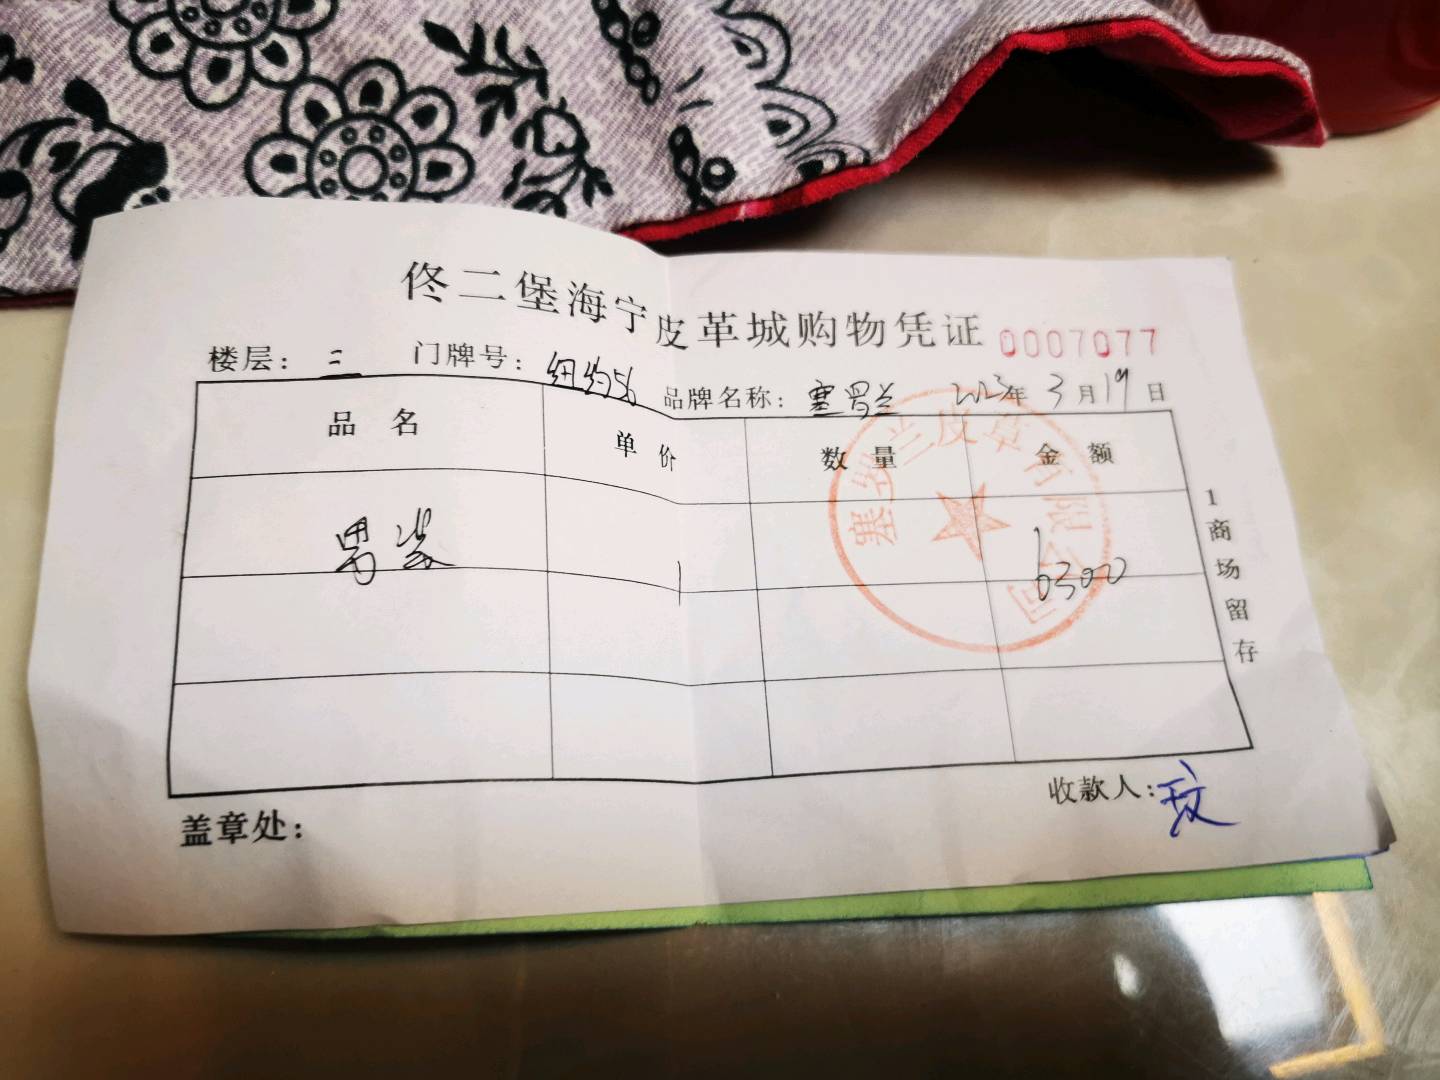 佟二堡海宁皮革城购物凭证 0007077
楼层: 二 门牌号: 纽约56 品牌名称: 塞罗兰 2023年3月19日
品 名 单 价 数 量 金 额
男装 1 6300
塞罗兰皮革有限公司
1商场留存
盖章处: 收款人: 玟